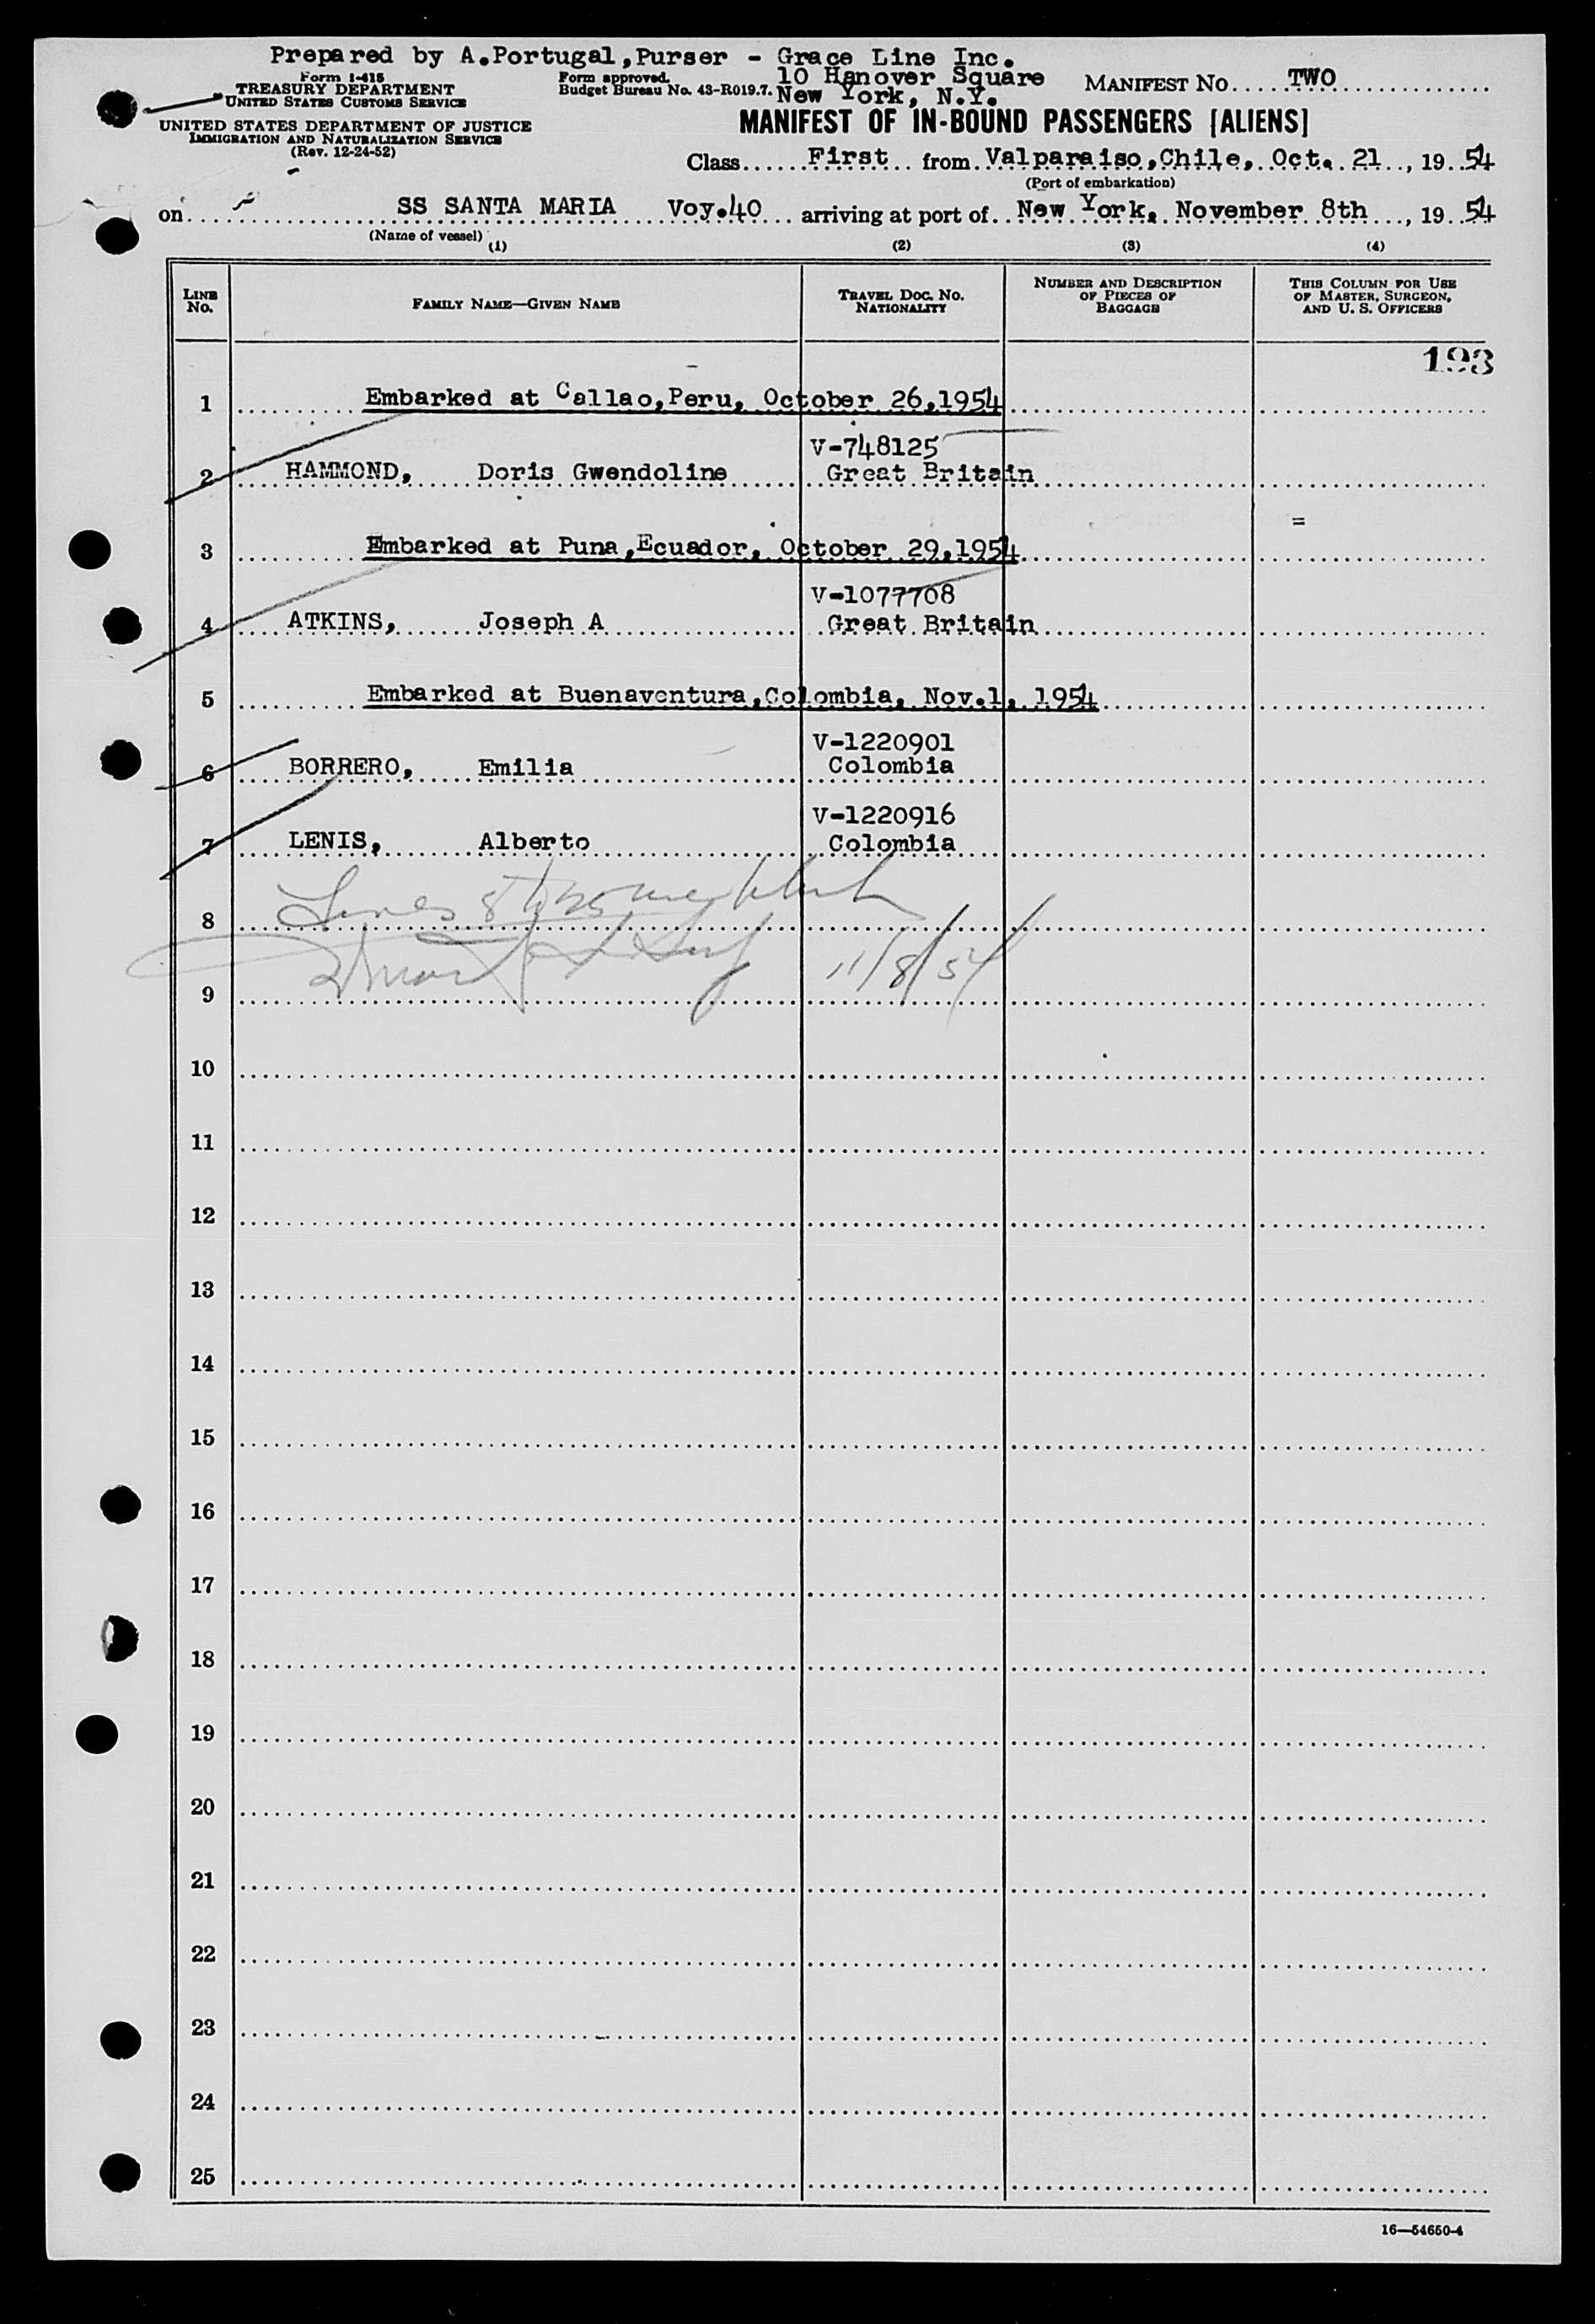 Prepared by A.Portugal,Purser - Grace Line Inc.
10 Hanover Square
New York, N.Y.
Form I-415
TREASURY DEPARTMENT
UNITED STATES CUSTOMS SERVICE
UNITED STATES DEPARTMENT OF JUSTICE
IMMIGRATION AND NATURALIZATION SERVICE
(Rev. 12-24-52)
Form approved.
Budget Bureau No. 43-R019.7.
MANIFEST NO. TWO
MANIFEST OF IN-BOUND PASSENGERS [ALIENS]
Class First from Valparaiso,Chile, Oct. 21, 19 54
(Port of embarkation)
on SS SANTA MARIA Voy.40 arriving at port of New York, November 8th, 19 54
(Name of vessel)
(1) (2) (3) (4)
LINE NO. FAMILY NAME—GIVEN NAME TRAVEL DOC. NO. NATIONALITY NUMBER AND DESCRIPTION OF PIECES OF BAGGAGE THIS COLUMN FOR USE OF MASTER, SURGEON, AND U. S. OFFICERS
193
1 Embarked at Callao,Peru, October 26,1954
V-748125
2 HAMMOND, Doris Gwendoline Great Britain
3 Embarked at Puna,Ecuador, October 29,1954
V-1077708
4 ATKINS, Joseph A Great Britain
5 Embarked at Buenaventura,Colombia, Nov.1, 1954
V-1220901
6 BORRERO, Emilia Colombia
V-1220916
7 LENIS, Alberto Colombia
8 Lines 8 to 25
9 11/8/54
10
11
12
13
14
15
16
17
18
19
20
21
22
23
24
25
16—54650-4